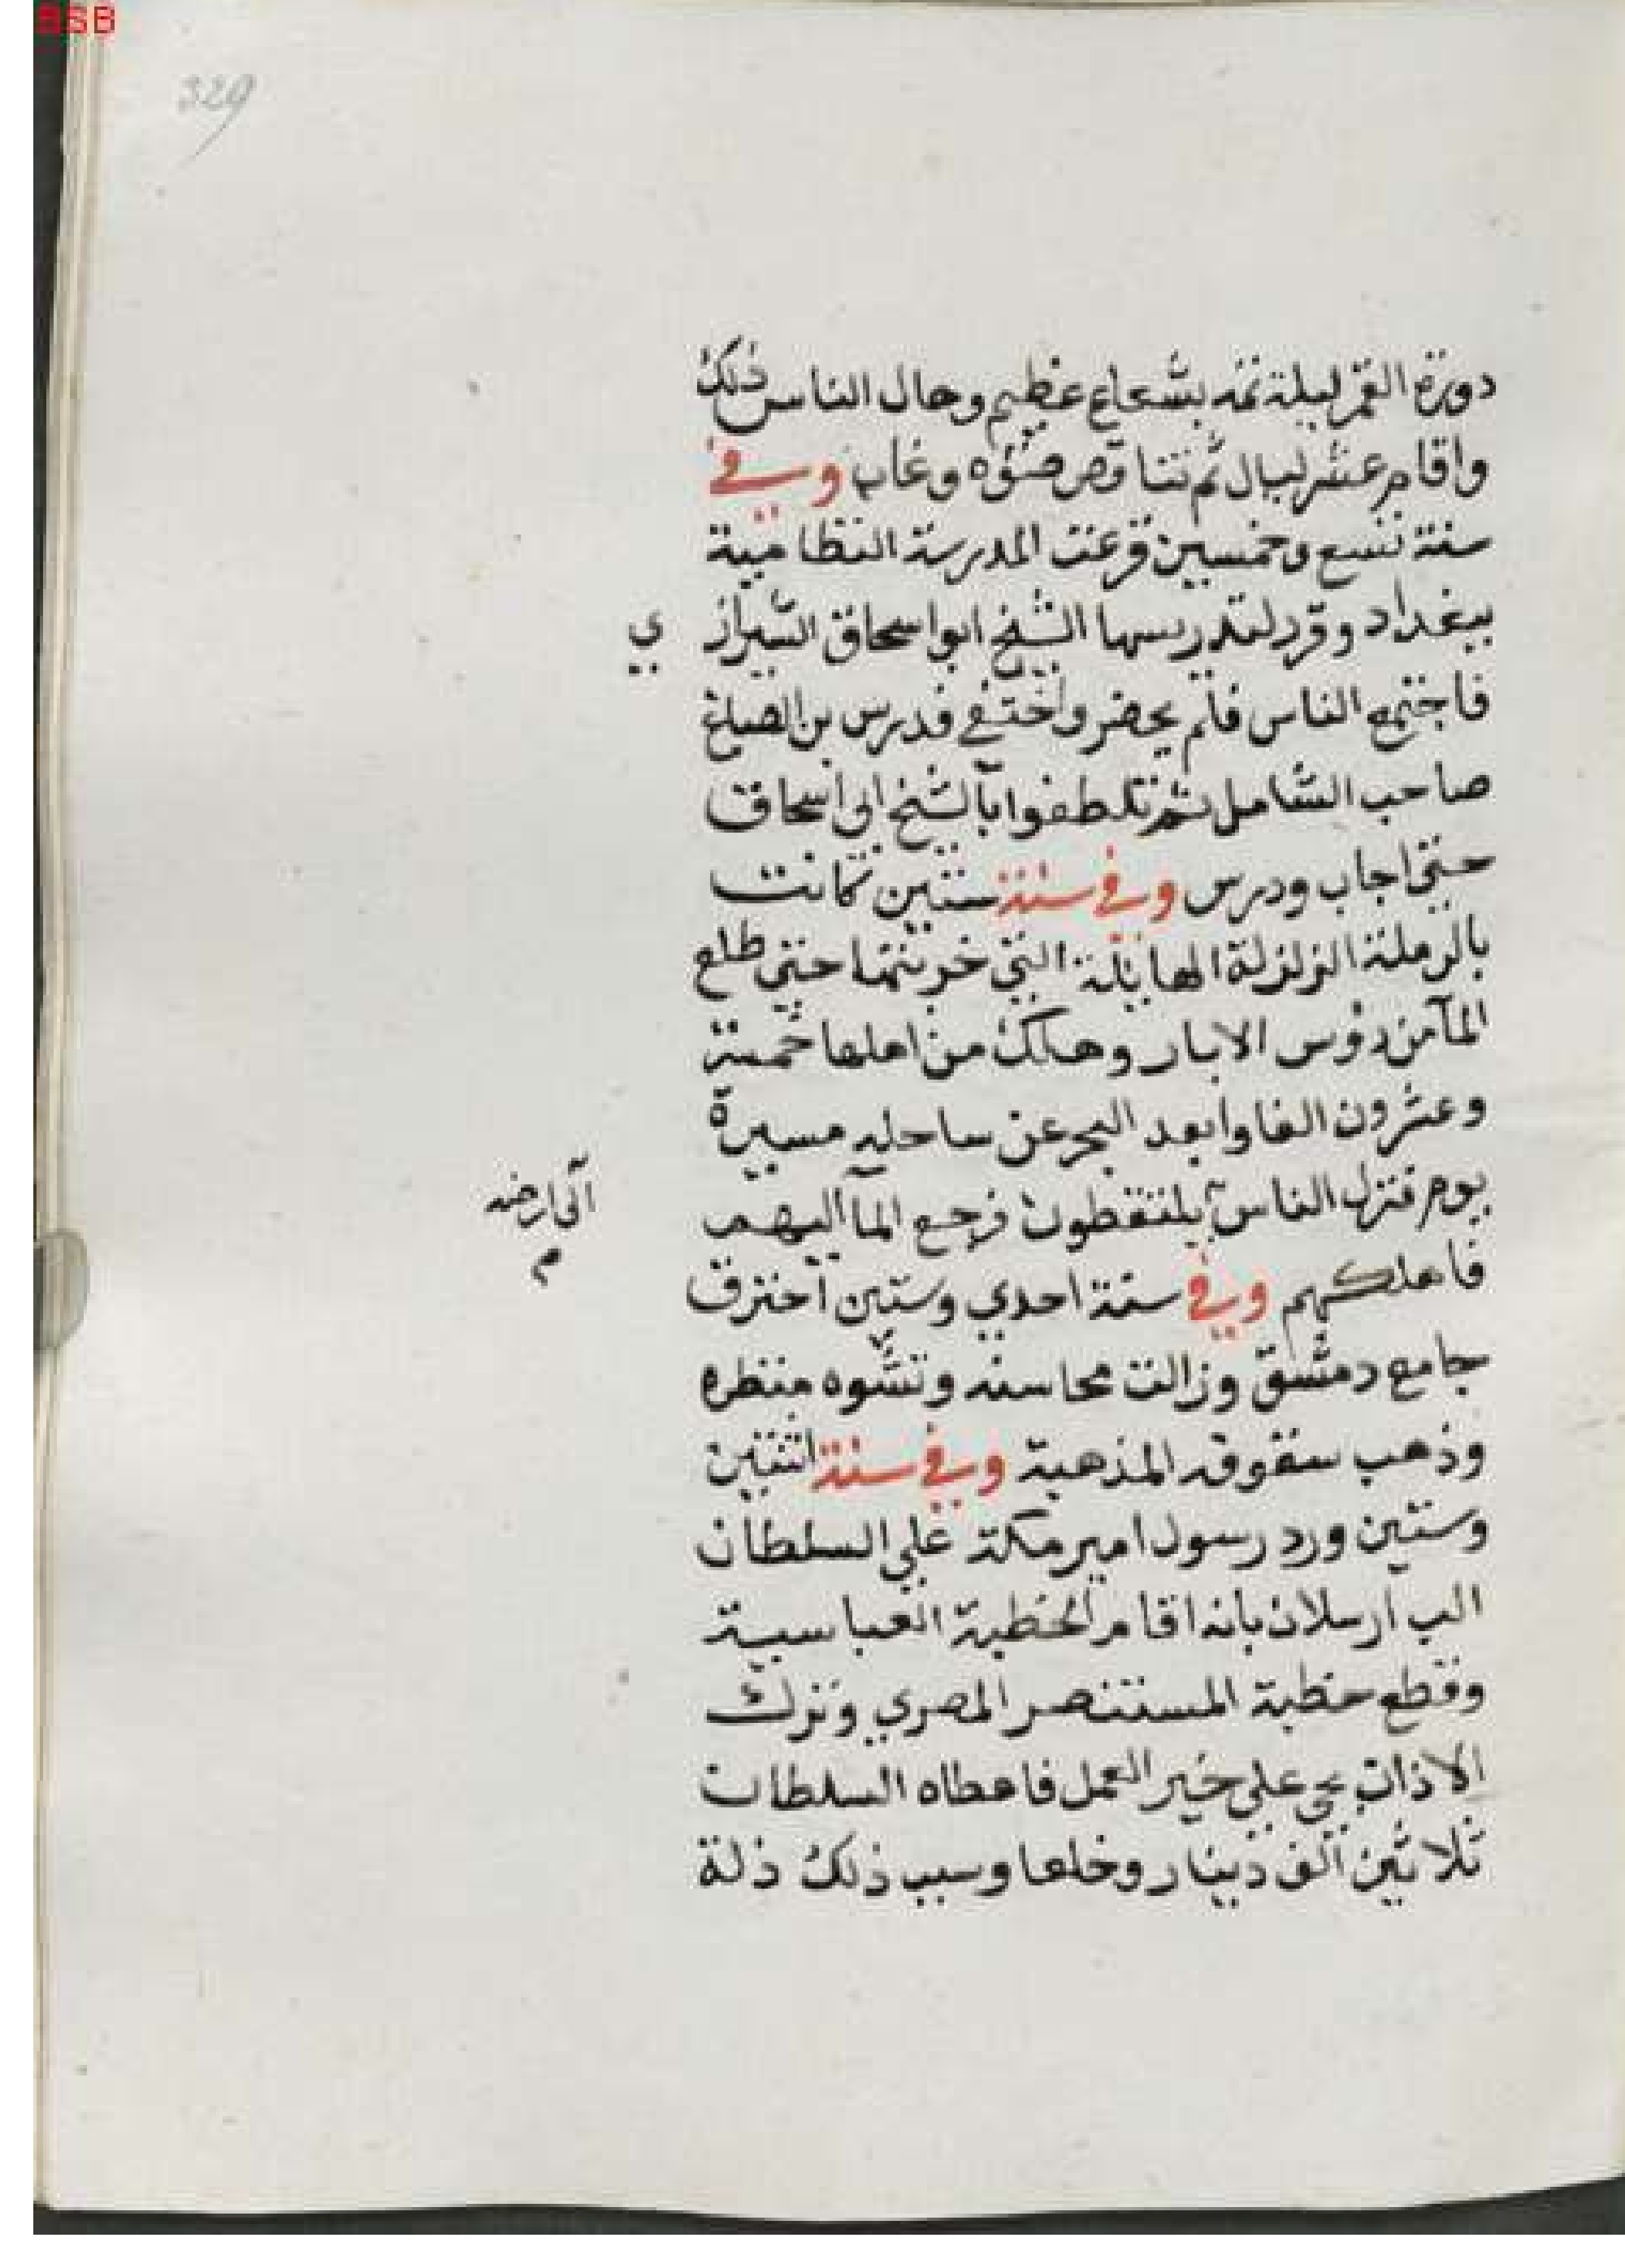 BSB
329
دورة القمر ليلة تمه بشعاع عظيم وحال الناس ذلك
واقام عشر ليال ثم تناقص ضوّه وغاب وفي
سنة تسع وخمسين فرغت المدرسة النظامية
ببغداد وقرر لتدريسها الشيخ ابو اسحاق الشيرازي
فاجتمع الناس فلم يحضر واختفي فدرس بن الصباغ
صاحب الشامل ثم تلطفوا بالشيخ ابي اسحاق
حتي اجاب ودرس وفي سنة ستين كانت
بالرملة الزلزلة الهايلة التي خربتها حتي طلع
المآ من روس الابار وهلك من اهلها خمسة
وعشرون الفا وابعد البحر عن ساحله مسيرة
يوم فنزل الناس يلتقطون فرجع المآ اليهم
الي ارضه
م
فاهلكهم وفي سنة احدي وستين احترق
جامع دمشق وزالت محاسنه وتشوه منظره
وذهب سقوفه المذهبة وفي سنة اثنتين
وستين ورد رسول امير مكة علي السلطان
الب ارسلان بانه اقام الخطبة العباسية
وقطع خطبة المستنصر المصري وترك
الاذان بحي علي خير العمل فاعطاه السلطان
ثلاثين الف دينار وخلعا وسبب ذلك ذلة